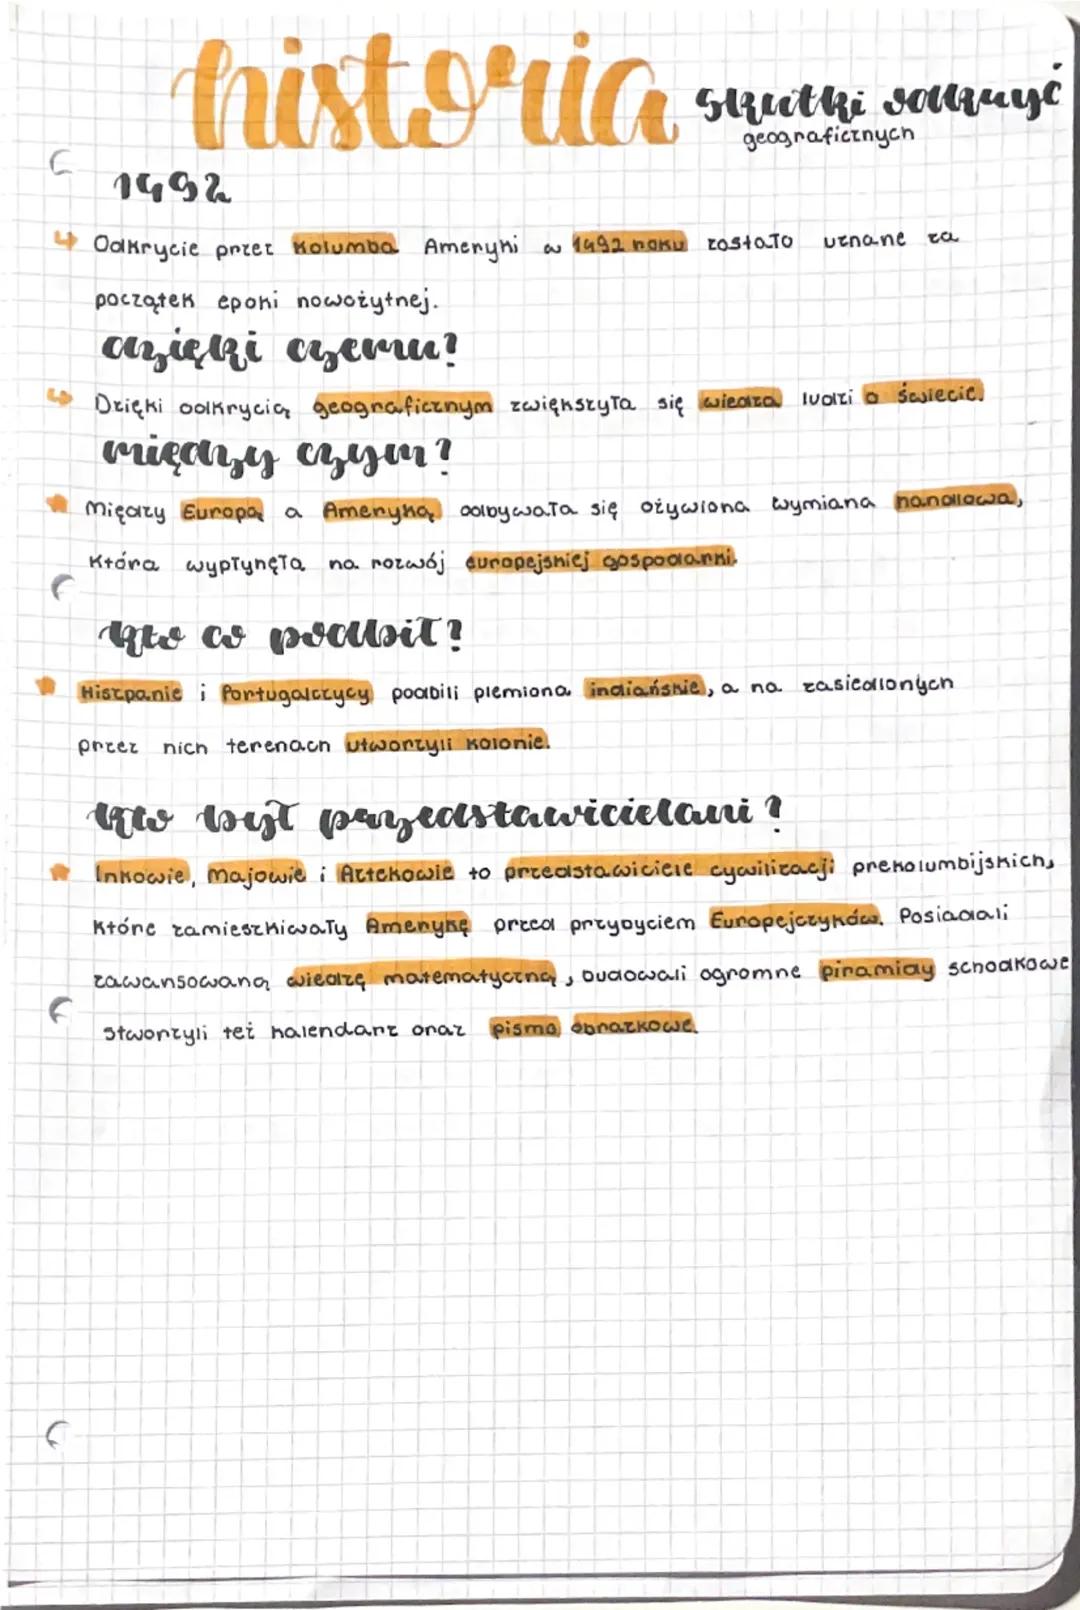 historia skutki odkryć
geograficznych
1492
Odkrycie przez Kolumba Ameryki w 1492 roku zostało uznane za
początek epoki nowożytnej.
dzięki czemu?
Dzięki odkrycią geograficznym zwiększyła się wiedza ludzi o świecie.
między czym?
Między Europą a Ameryką odbywała się ożywiona wymiana handlowa,
która wypłynęła na rozwój europejskiej gospodarki.
kto co podbił?
Hiszpanie i Portugalczycy podbili plemiona indiańskie, a na zasiedlonych
przez nich terenach utworzyli kolonie.
kto był przedstawicielami?
Inkowie, Majowie i Aztekowie to przedstawiciele cywilizacji prekolumbijskich,
które zamieszkiwały Amerykę przed przybyciem Europejczyków. Posiadali
zawansowaną wiedzę matematyczną, budowali ogromne piramidy schodkowe
stworzyli też kalendarz oraz pismo obrazkowe.